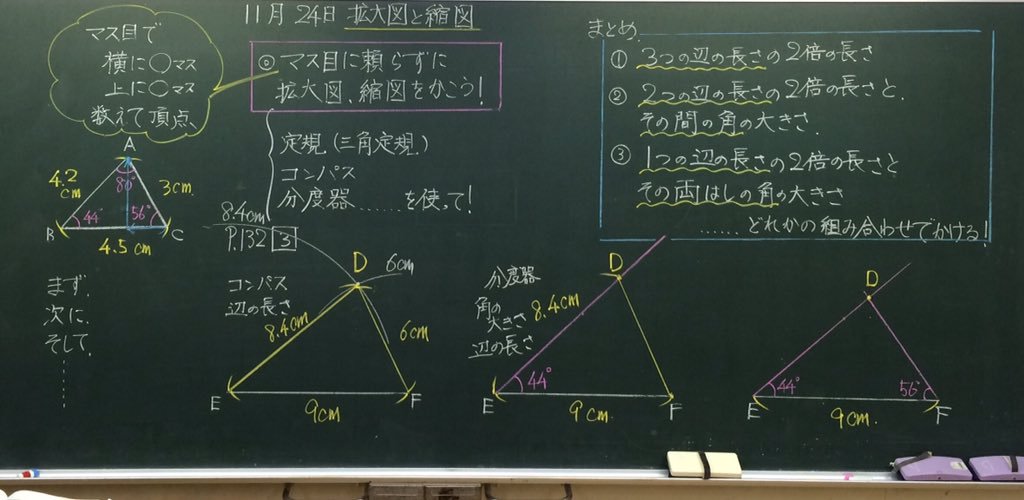 11月24日 拡大図と縮図
マス目で
横に○マス
上に○マス
数えて頂点、
◎マス目に頼らずに
拡大図、縮図をかこう!
定規(三角定規)
コンパス
分度器……を使って!
A
4.2
cm
80°
3cm
44°
56°
B
C
4.5cm
まず、
次に、
そして、
8.4cm
P.132 3
コンパス
辺の長さ
D
6cm
8.4cm
6cm
E
F
9cm
分度器
角の
大きさ
辺の長さ
D
8.4cm
44°
E
F
9cm.
D
44°
56°
E
F
9cm.
まとめ.
① 3つの辺の長さの2倍の長さ
② 2つの辺の長さの2倍の長さと、
その間の角の大きさ.
③ 1つの辺の長さの2倍の長さと
その両はしの角の大きさ
……どれかの組み合わせでかける!